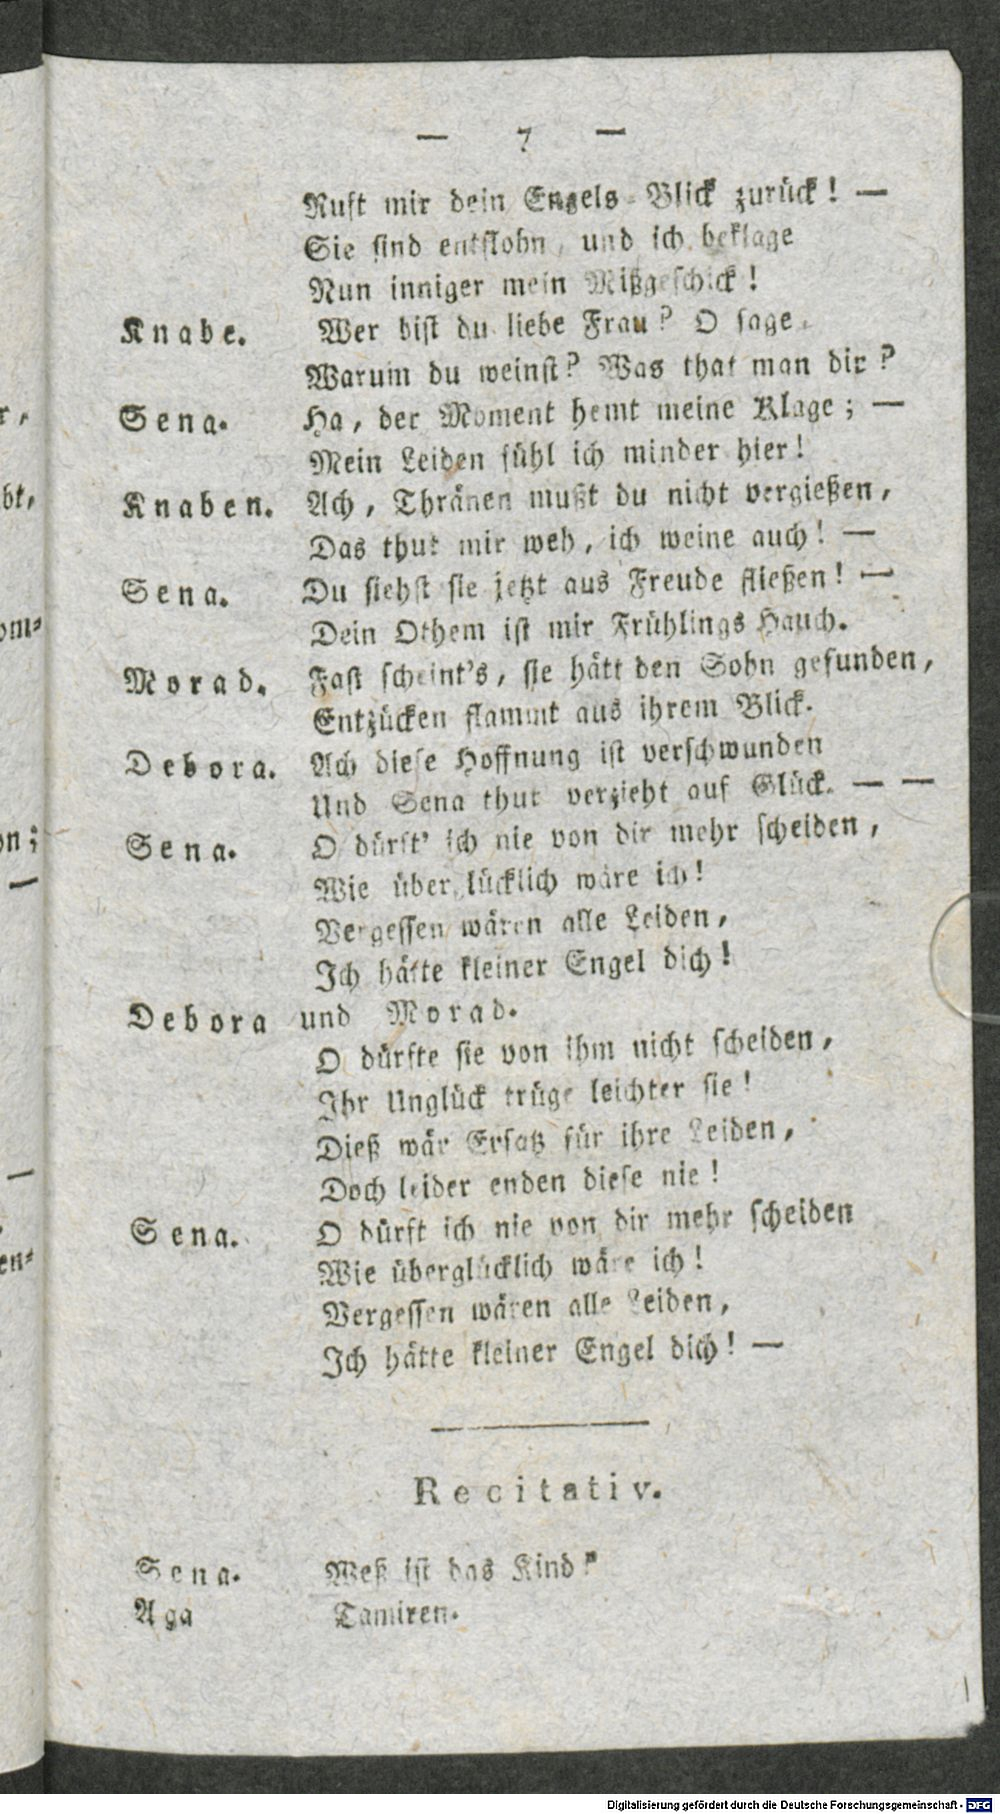 — 7 —
Ruft mir dein Engels-Blick zurück! —
Sie sind entflohn, und ich beklage
Nun inniger mein Mißgeschick!
Knabe. Wer bist du liebe Frau? O sage,
Warum du weinst? Was that man dir?
Sena. Ha, der Moment hemt meine Klage; —
Mein Leiden fühl ich minder hier!
Knaben. Ach, Thränen mußt du nicht vergießen,
Das thut mir weh, ich weine auch! —
Sena. Du siehst sie jetzt aus Freude fließen! —
Dein Othem ist mir Frühlings Hauch.
Morad. Fast scheint's, sie hätt den Sohn gefunden,
Entzücken flammt aus ihrem Blick.
Debora. Ach diese Hoffnung ist verschwunden
Und Sena thut verzieht auf Glück. — —
Sena. O dürft' ich nie von dir mehr scheiden,
Wie überglücklich wäre ich!
Vergessen wären alle Leiden,
Ich hätte kleiner Engel dich!
Debora und Morad.
O dürfte sie von ihm nicht scheiden,
Ihr Unglück trüge leichter sie!
Dieß wär Ersatz für ihre Leiden,
Doch leider enden diese nie!
Sena. O dürft ich nie von dir mehr scheiden
Wie überglücklich wäre ich!
Vergessen wären alle Leiden,
Ich hätte kleiner Engel dich! —
Recitativ.
Sena. Weß ist das Kind?
Aga Tamiren.
Digitalisierung gefördert durch die Deutsche Forschungsgemeinschaft - DFG